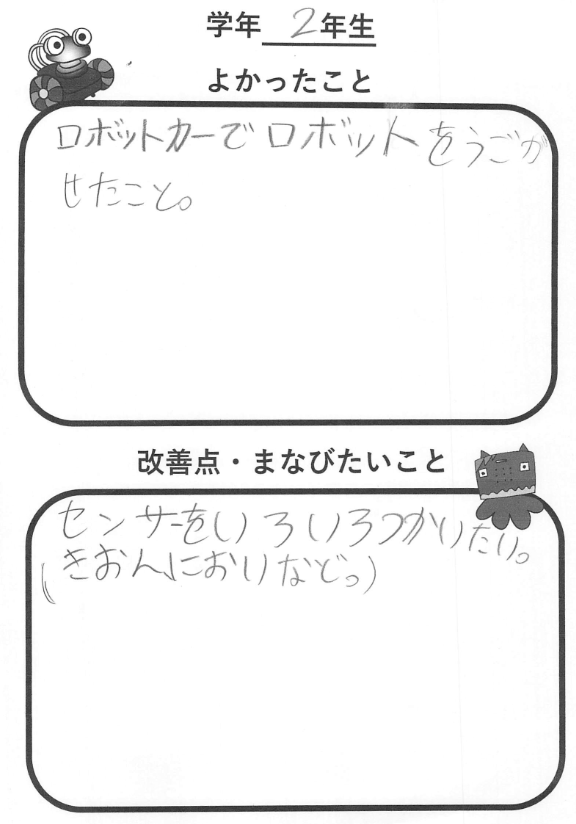 学年 2年生
よかったこと
ロボットカーでロボットをうごか
せたこと。
改善点・まなびたいこと
センサーをいろいろつかいたい。
(きおん、においなど。)